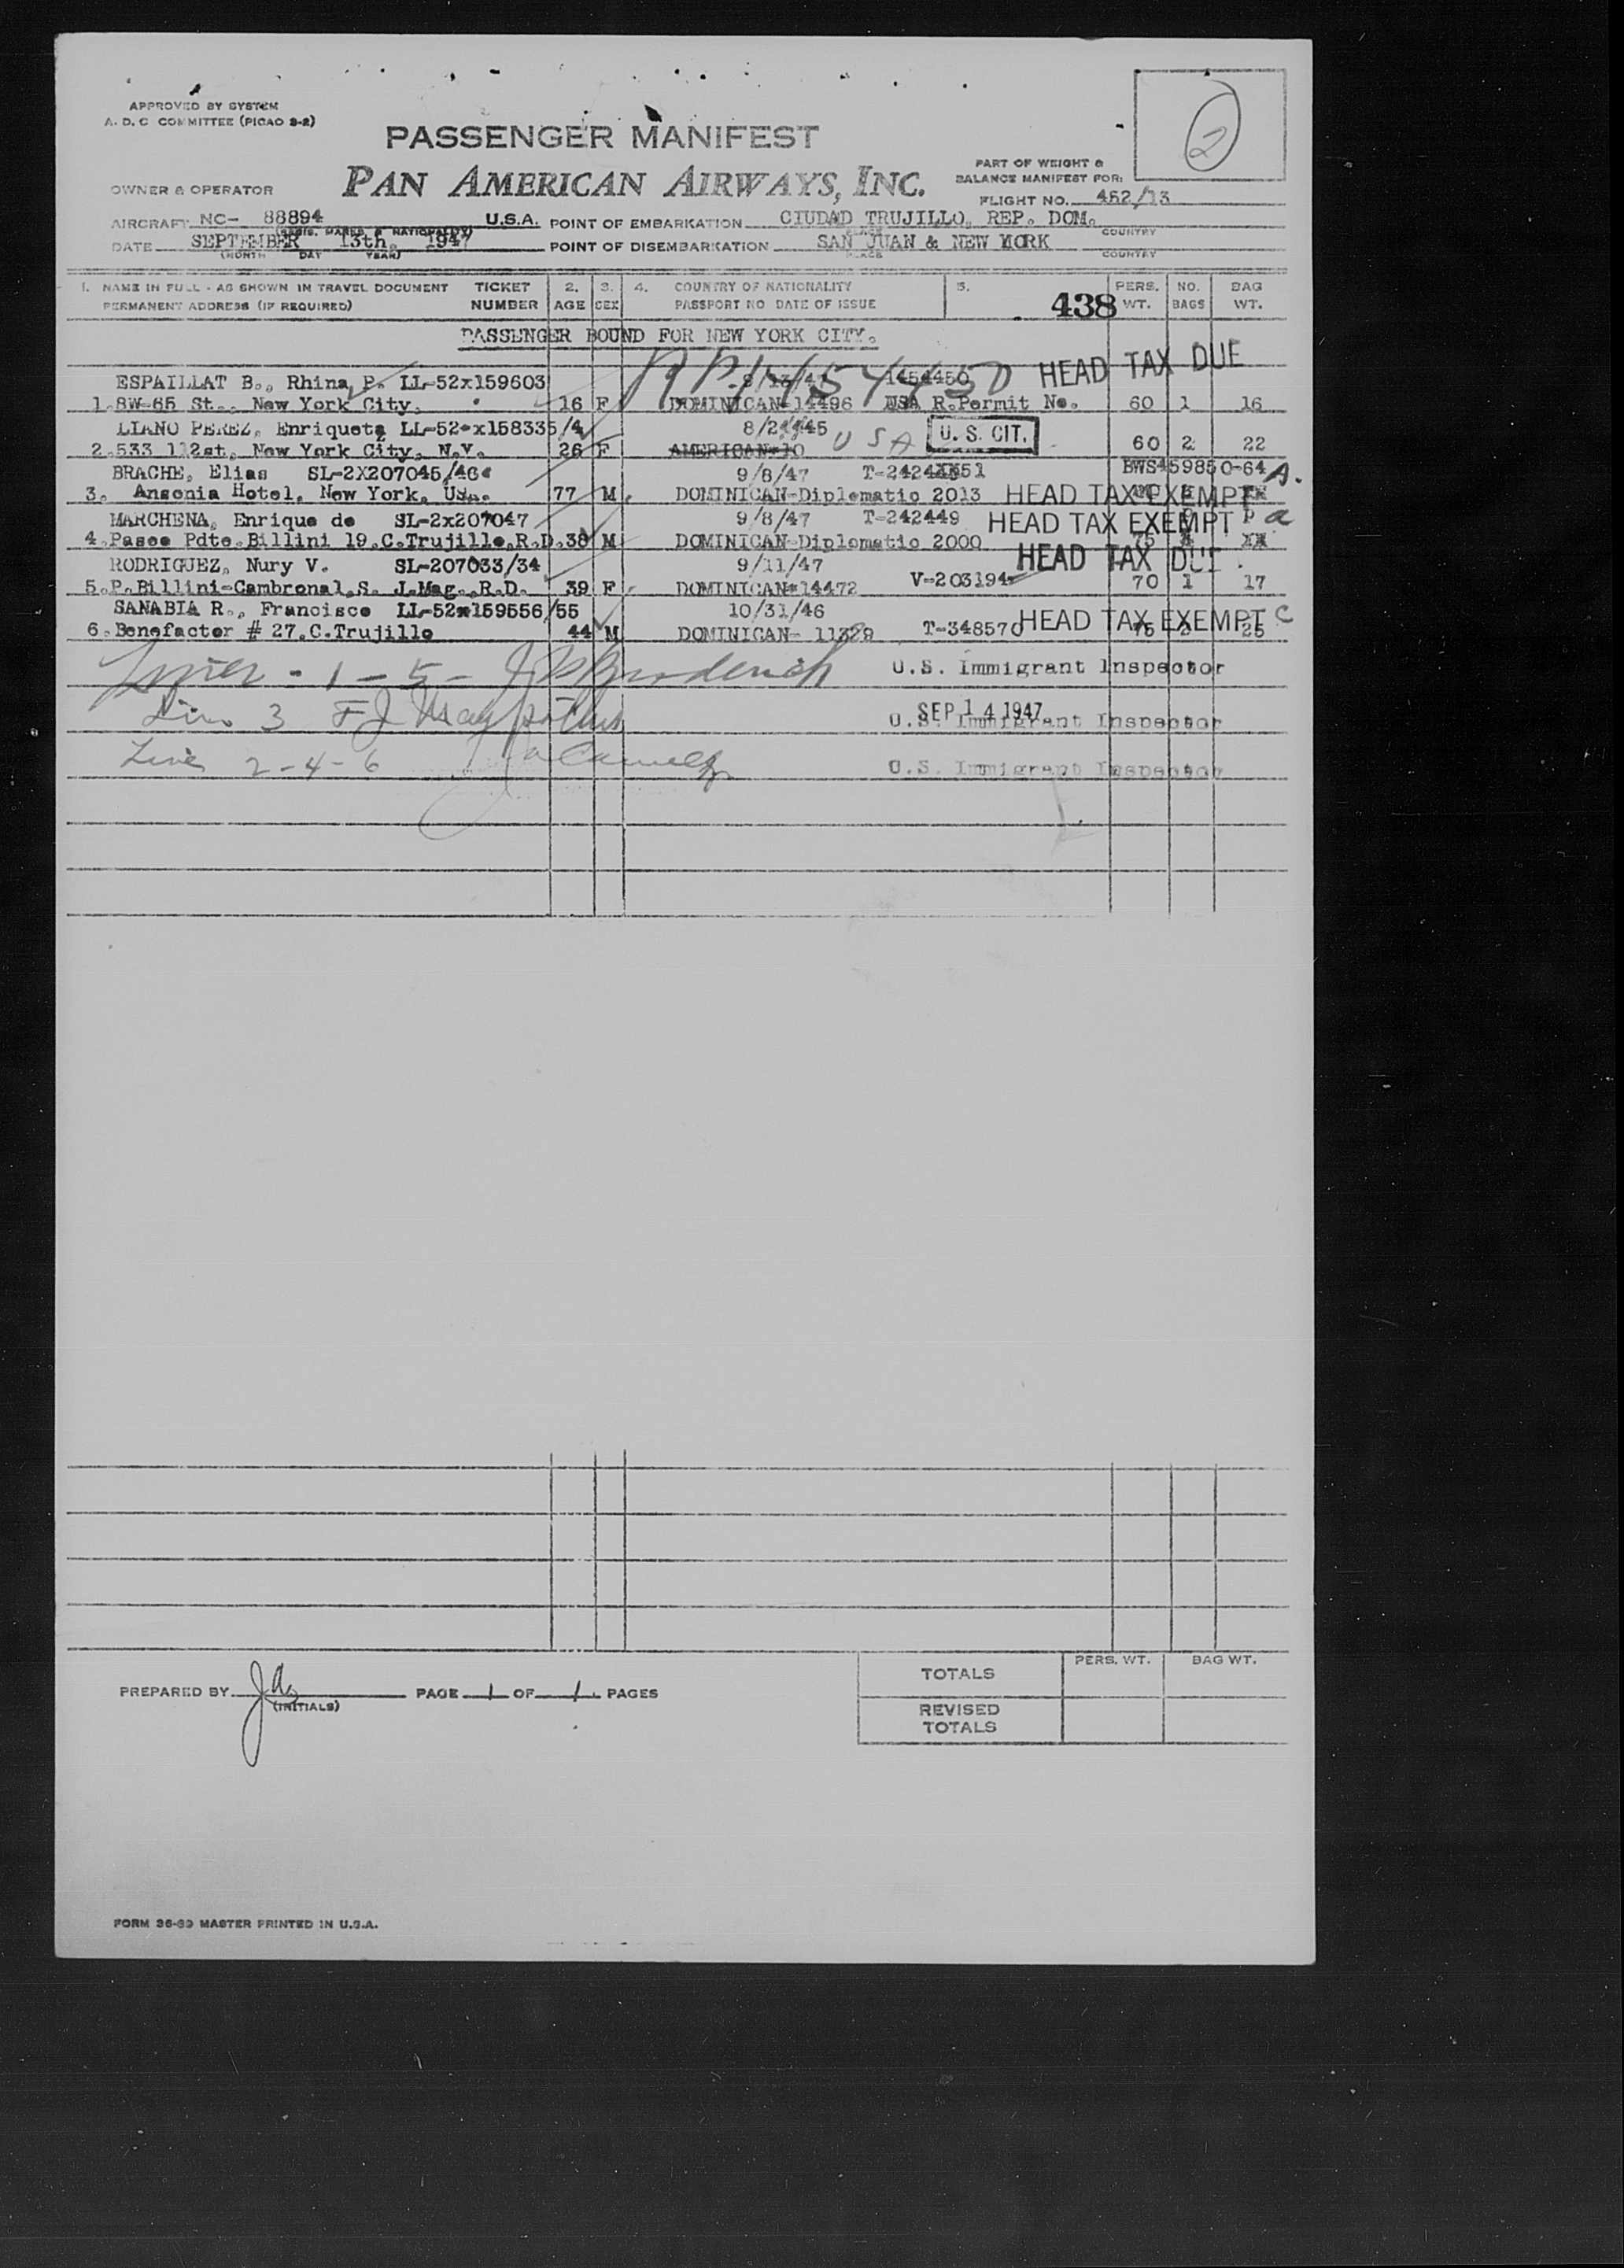 APPROVED BY SYSTEM
A. D. C COMMITTEE (PICAO 8-2)
2
PASSENGER MANIFEST
PAN AMERICAN AIRWAYS, INC.
PART OF WEIGHT &
BALANCE MANIFEST FOR:
OWNER & OPERATOR
FLIGHT NO. 452/13
AIRCRAFT NC- 88894 U.S.A. POINT OF EMBARKATION CIUDAD TRUJILLO, REP. DOM.
(REGIS. MARKS & NATIONALITY) PLACE COUNTRY
DATE SEPTEMBER 13th, 1947 POINT OF DISEMBARKATION SAN JUAN & NEW YORK
(MONTH DAY YEAR) PLACE COUNTRY
1. NAME IN FULL - AS SHOWN IN TRAVEL DOCUMENT TICKET 2. 3. 4. COUNTRY OF NATIONALITY 5. PERS. NO. BAG
PERMANENT ADDRESS (IF REQUIRED) NUMBER AGE SEX PASSPORT NO DATE OF ISSUE 438 WT. BAGS WT.
PASSENGER BOUND FOR NEW YORK CITY.
HEAD TAX DUE
ESPAILLAT B., Rhina P. LL-52x159603 1454450
1.8W-65 St., New York City. 16 F DOMINICAN-14496 USA R.Permit No. 60 1 16
LIANO PEREZ, Enriqueta LL-52-x158335/4 USA U. S. CIT.
2.533 112st, New York City, N.Y. 26 F AMERICAN-10 60 2 22
BRACHE, Elias SL-2X207045/46 9/8/47 BWS459850-64 A.
3. Ansonia Hotel, New York, 77 M DOMINICAN-Diplomatic 2013 HEAD TAX EXEMPT
MARCHENA, Enrique de SL-2x207047 9/8/47 T-242449 HEAD TAX EXEMPT a
4.Paseo Pdte.Billini 19.C.Trujillo,R.D.38 M DOMINICAN-Diplomatic 2000 75 XX
RODRIGUEZ, Nury V. SL-207033/34 9/11/47 HEAD TAX DUE
5.P.Billini-Cambronal,S. J.Mag.,R.D. 39 F DOMINICAN-14472 V-203194 70 1 17
SANABIA R., Francisco LL-52x159556/55 10/31/46 HEAD TAX EXEMPT C
6.Benefactor # 27.C.Trujillo 44 M DOMINICAN- T-348570 75 25
- 1 - 5 - U.S. Immigrant Inspector
SEP 14 1947
Line 3 U.S. Immigrant Inspector
Line 2-4-6 U.S. Immigrant Inspector
PREPARED BY (INITIALS) PAGE 1 OF 1 PAGES
TOTALS PERS. WT. BAG WT.
REVISED
TOTALS
FORM 36-69 MASTER PRINTED IN U.S.A.